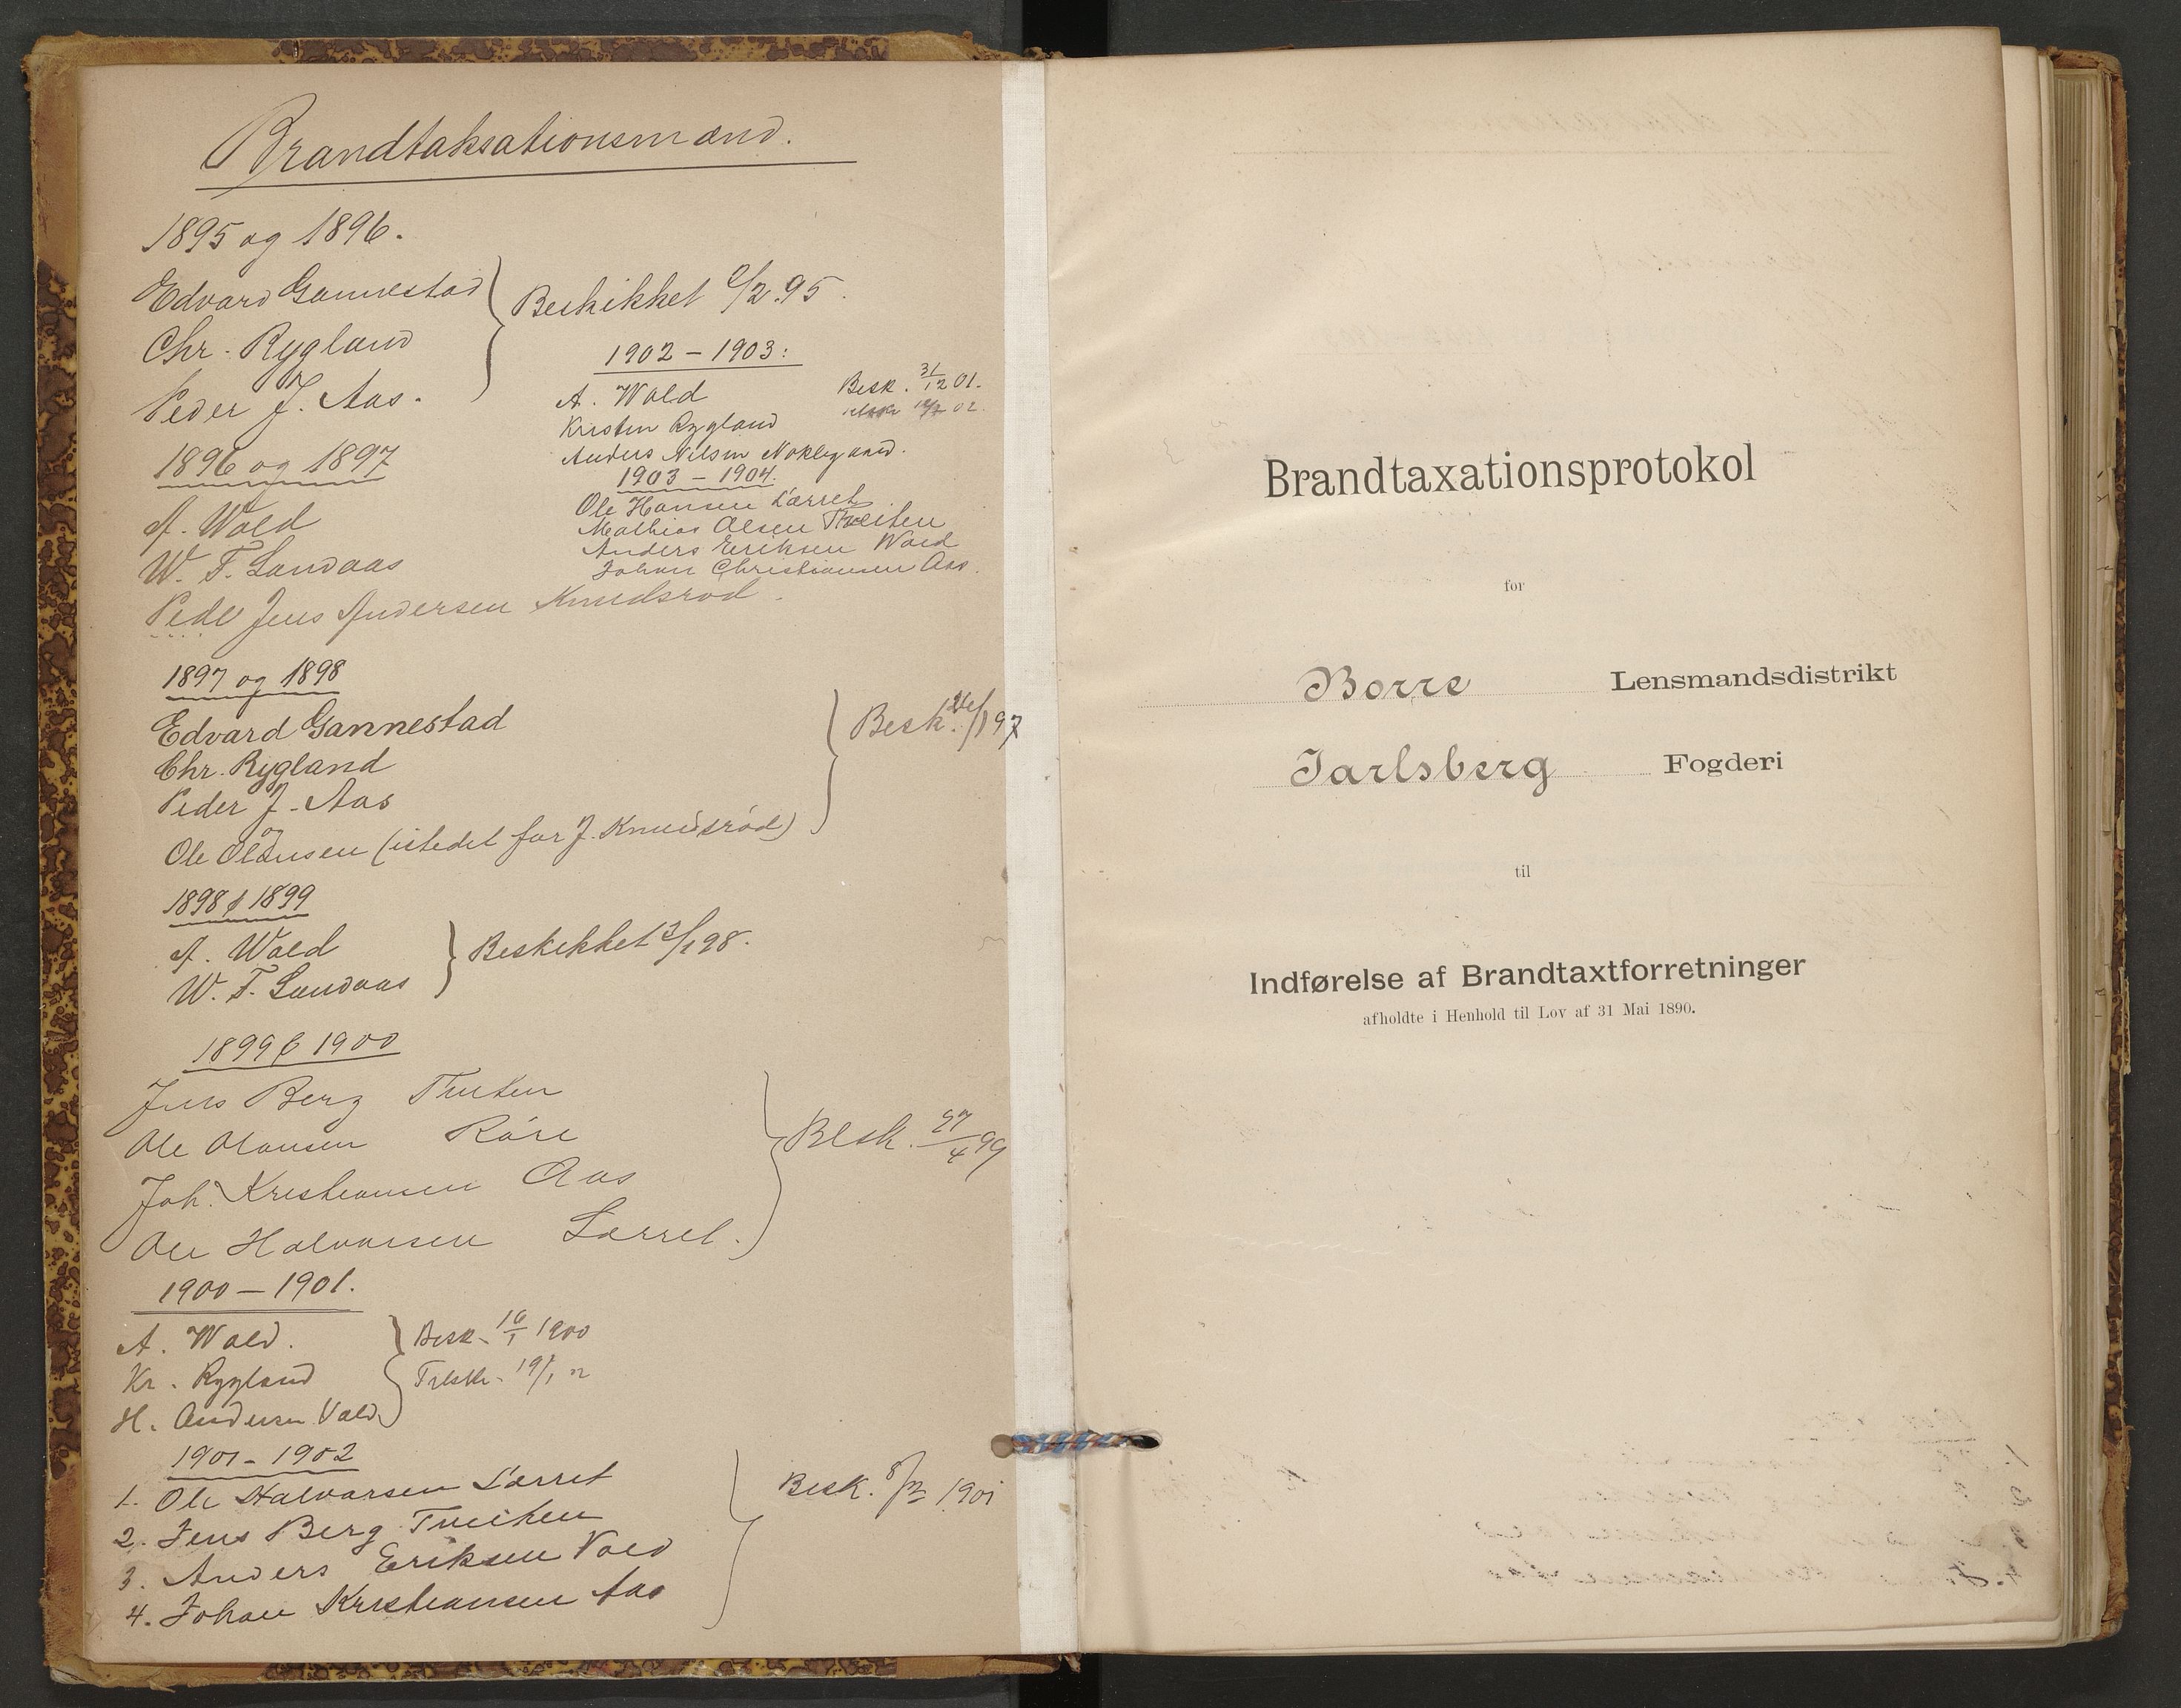 Brandtaksationsmænd.
1895 og 1896.
Edvard Gannestad
Chr. Rygland
Peder J. Aas.
Beskikket 9/2.95.
1896 og 1897
A. Wold
W. F. Sandaas
Pede Jens Andersen Knudsrød.
1902 – 1903:
A. Wold
Kristen Rygland
Anders Nilsen Nøklegaard.
Besk. 31/12 01.
02.
1903 – 1904.
Ole Hansen Lærret
Mathias Olsen Tveiten
Anders Eriksen Wold
Johan Christiansen Aas.
1897 og 1898
Edvard Gannestad
Chr. Rygland
Peder J. Aas
Ole Olansen (istedet for J. Knudsrød)
Besk. 26/1 97
1898 & 1899
A. Wold
W. F. Sandaas
Beskikket 3/1 98.
1899 & 1900
Jens Berg Tveiten
Ole Olausen Røre
Joh. Kristiansen Aas
Ole Halvorsen Lærret.
Besk. 27/4 99
1900 – 1901.
A. Wold.
Kr. Rygland
H. Andersen Vold
Besk. 16/1 1900
Tilsk. 19/1 "
1901 – 1902
1. Ole Halvorsen Lærret
2. Jens Berg Tveiten
3. Anders Eriksen Vold
4. Johan Kristiansen Aas
Besk. 8/2 1901
Brandtaxationsprotokol
for
Borre Lensmandsdistrikt
Jarlsberg Fogderi
til
Indførelse af Brandtaxtforretninger
afholdte i Henhold til Lov af 31 Mai 1890.